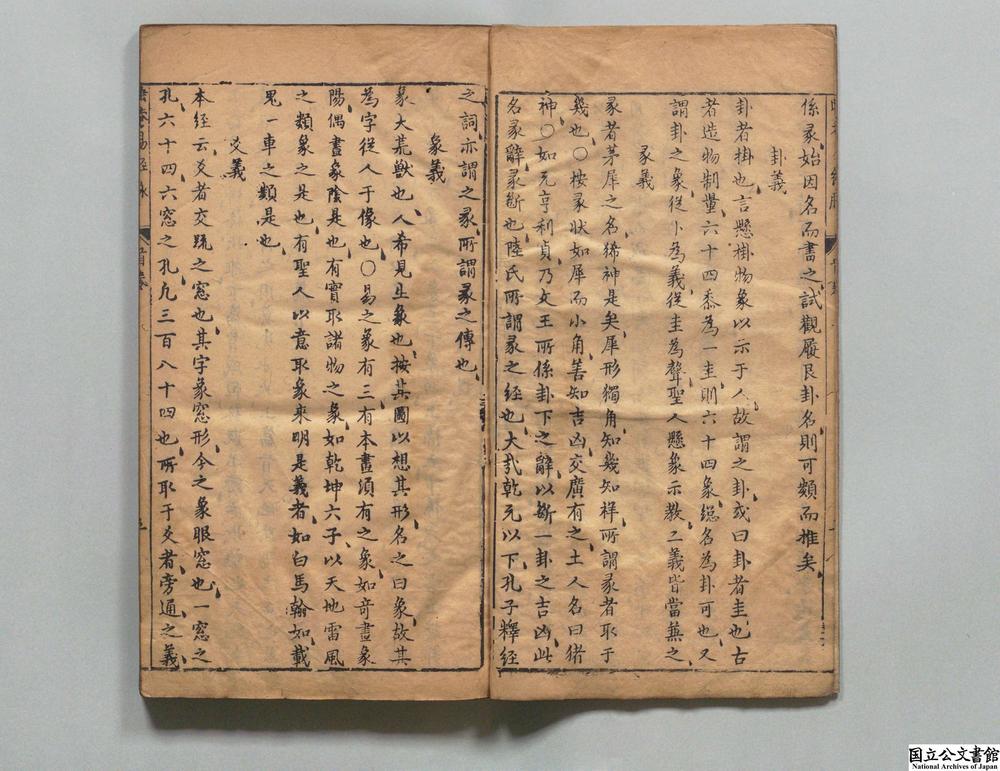 係彖始因名而書之試觀屐艮卦名則可類而推矣
卦義
卦者掛也言懸掛物象以示于人故謂之卦或曰卦者圭也古
者造物制量六十四黍為一圭則六十四象總名為卦可也又
謂卦之象從卜為義從圭為聲聖人懸象示教二義皆當兼之
彖義
彖者茅犀之名狶神是矣犀形獨角知幾知祥所謂彖者取于
幾也○按彖狀如犀而小角善知吉凶交廣有之土人名曰猪
神○如元亨利貞乃文王所係卦下之辭以斷一卦之吉凶此
名彖辭彖斷也陸氏所謂彖之經也大哉乾元以下孔子釋經
之詞亦謂之彖所謂彖之傳也
象義
象大荒獸也人希見生象也按其圖以想其形名之曰象故其
為字從人于像也○易之象有三有本畫須有之象如竒畫象
陽偶畫象陰是也有實取諸物之象如乾坤六子以天地雷風
之類象之是也有聖人以意取象來明是義者如白馬翰如載
鬼一車之類是也
爻義
本經云爻者交疏之窓也其字象窓形今之象眼窓也一窓之
孔六十四六窓之孔凡三百八十四也所取于爻者旁通之義
首卷
国立公文書館
National Archives of Japan